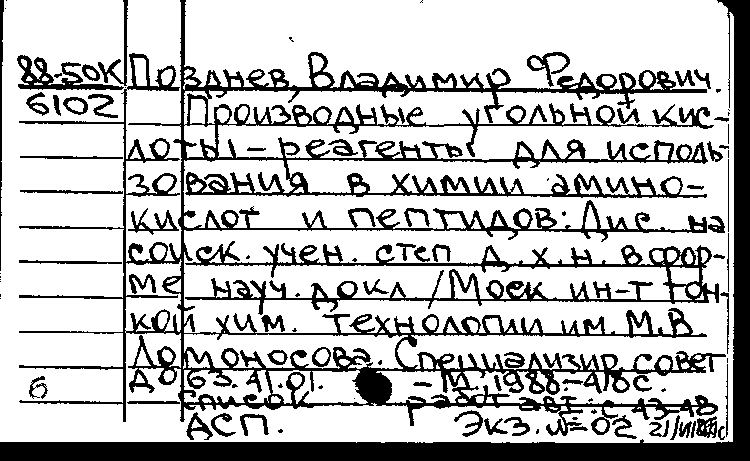 88-50К Позднев, Владимир Федорович.
6102 Производные угольной кис-
лоты - реагенты для исполь-
зования в химии амино-
кислот и пептидов: Дис. на
соиск. учен. степ д.х.н. в фор-
ме науч. докл / Моск ин-т тон-
кой хим. технологии им. М.В.
Ломоносова. Специализир. совет
До 63.41.01. - М., 1988. - 48с.
б список работ авт.: с. 43-48
АСП. Экз. № 02